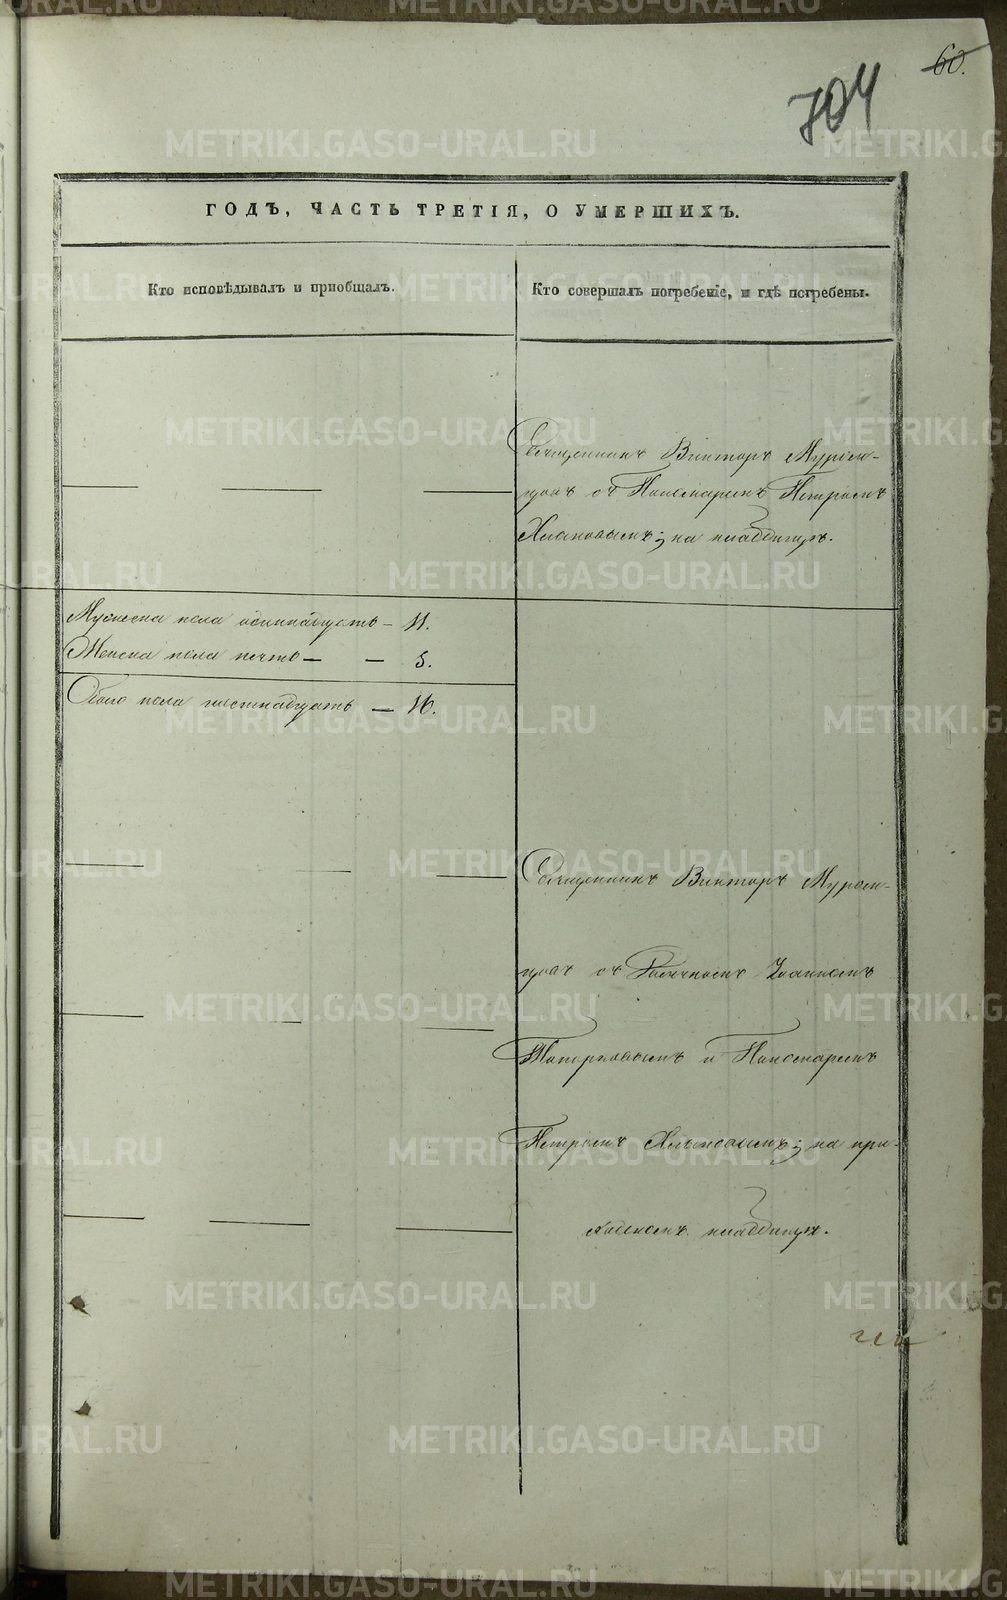 60.
704
ГОДЪ, ЧАСТЬ ТРЕТІЯ, О УМЕРШИХЪ.
Кто исповѣдывалъ и пріобщалъ.
Кто совершалъ погребеніе, и гдѣ погребены.
Священникъ Викторъ Муром-
цовъ съ Пономаремъ Петромъ
на кладбищѣ.
Мужеска пола одиннадцать – 11.
Женска пола пять – – 5.
Обоего пола шестнадцать – 16.
Священникъ Викторъ Муром-
цовъ съ Іоанномъ
Топорковымъ и Пономаремъ
Петромъ на при-
ходскомъ кладбищѣ.
METRIKI.GASO-URAL.RU